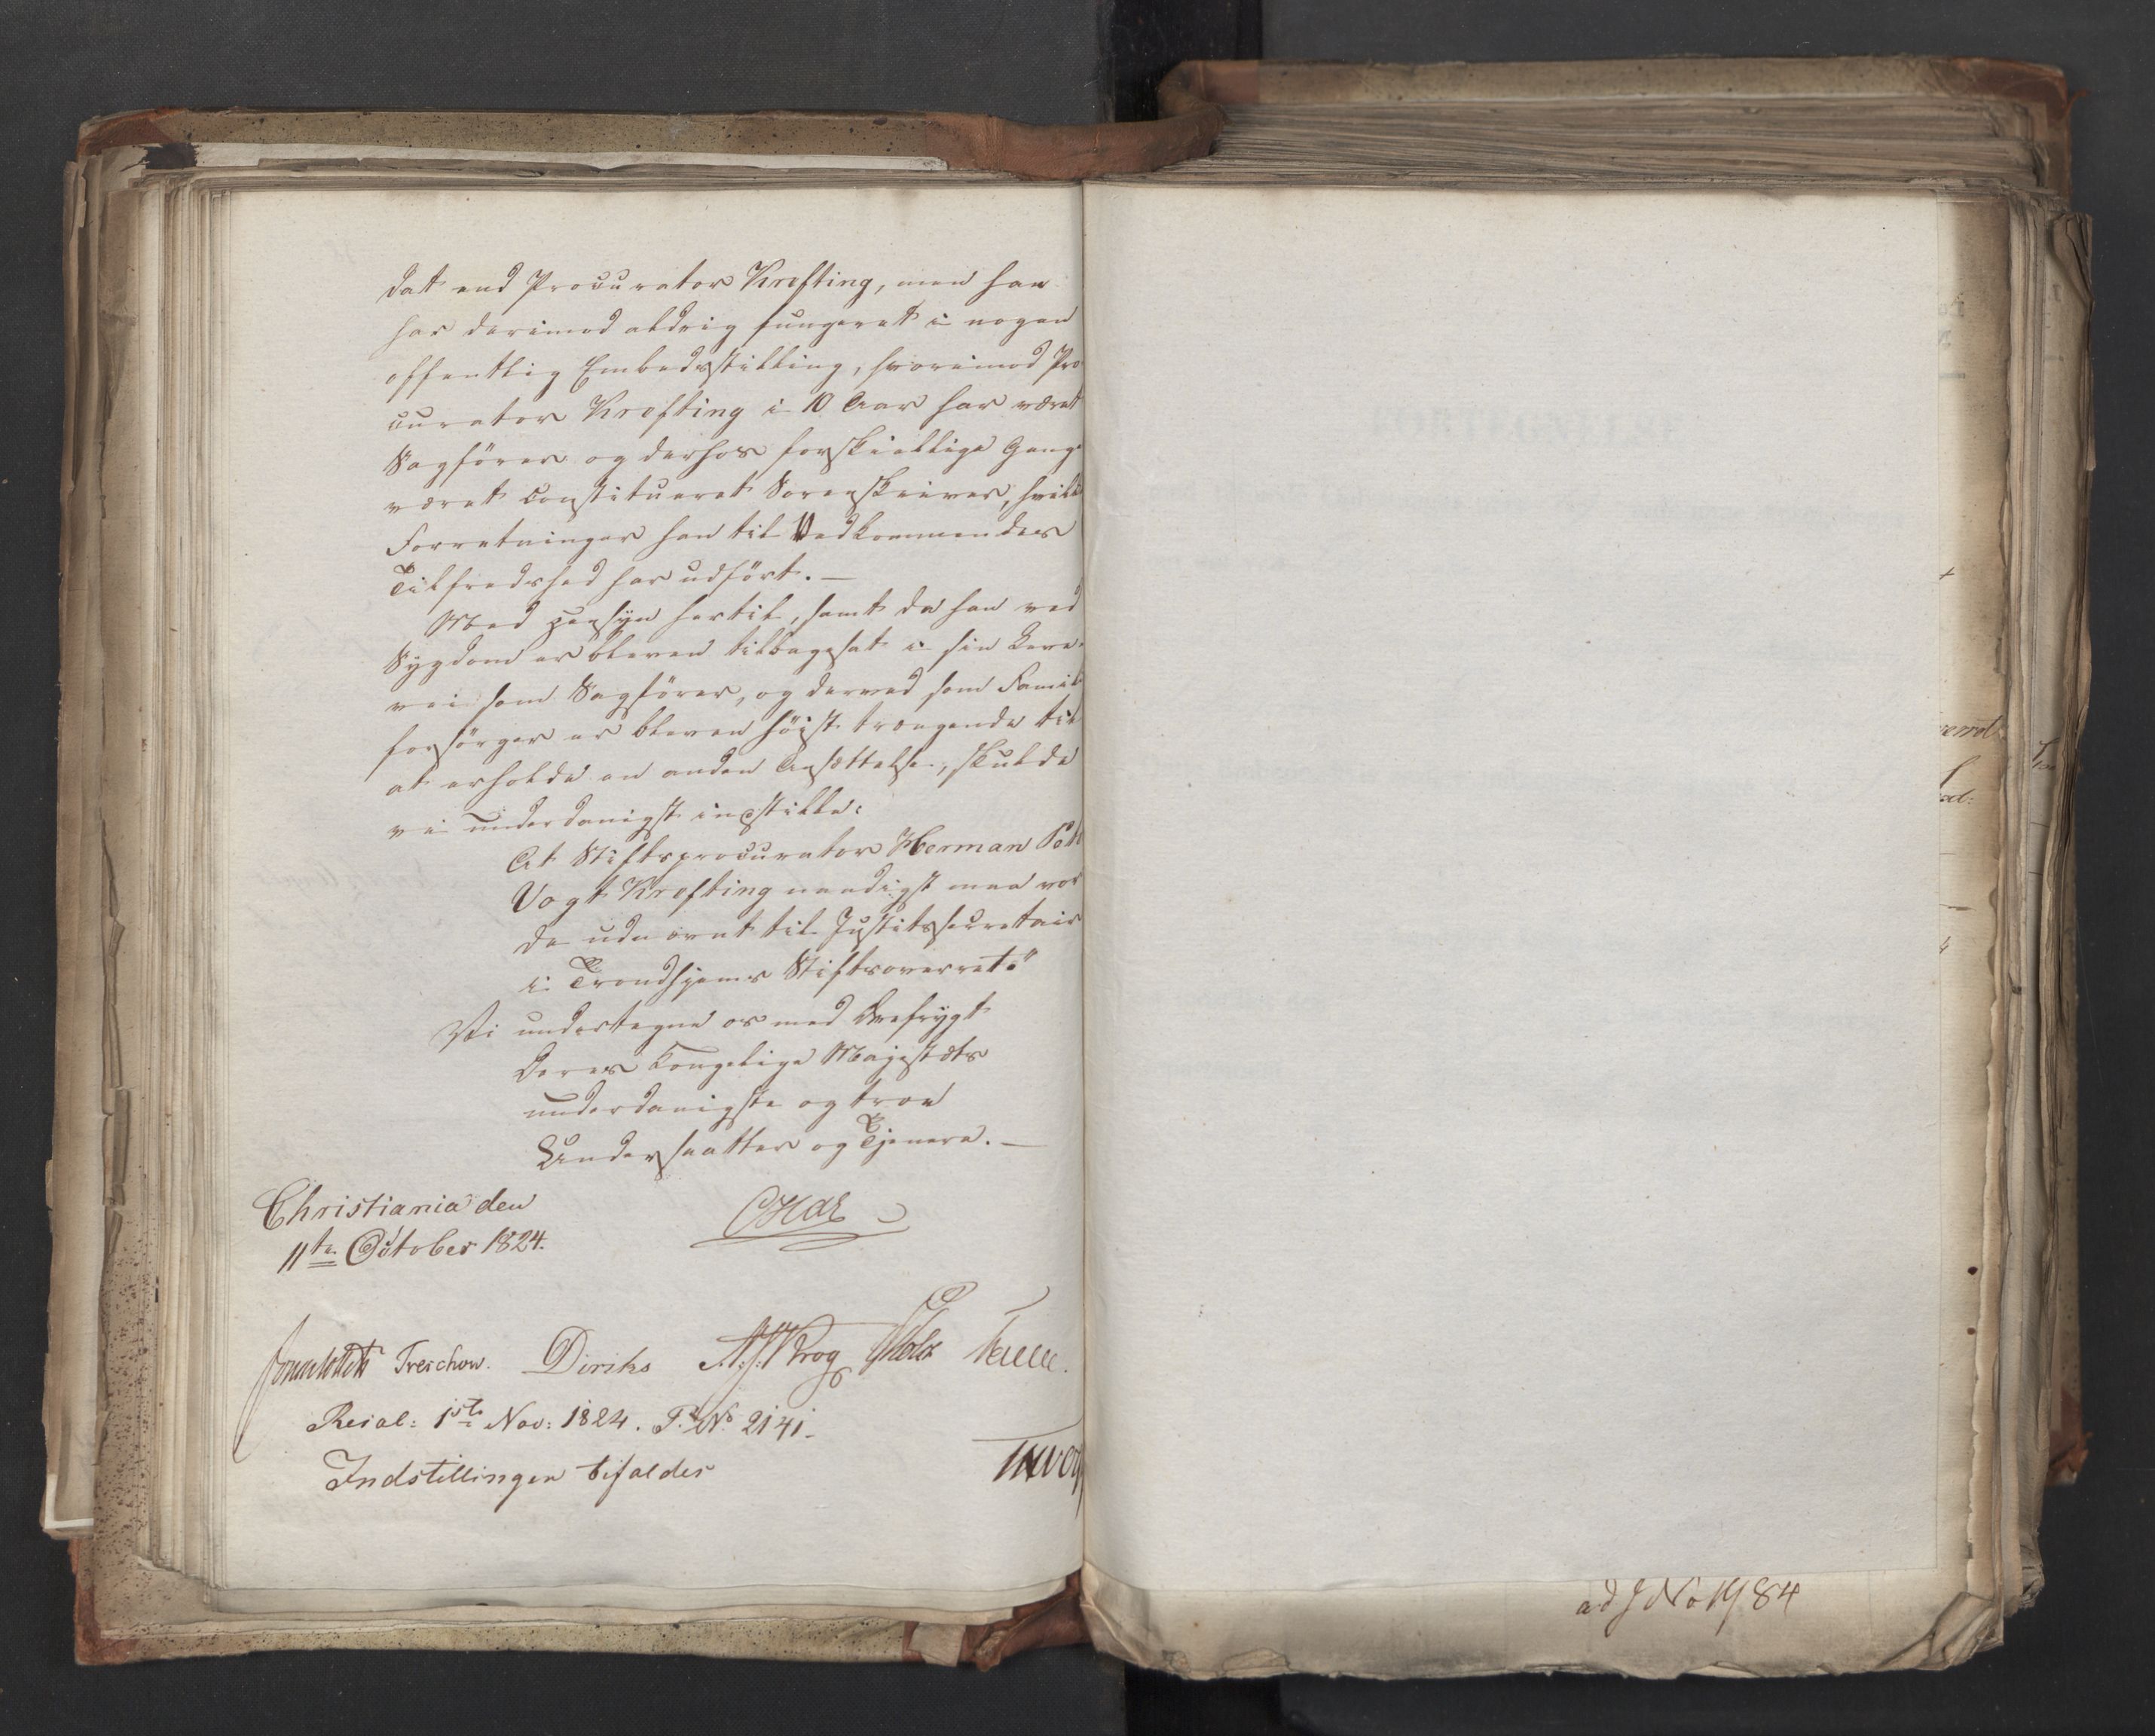 dat end Procurator Krefting, men han
har derimod aldrig fungeret i nogen
offentlig Embedsstilling, hvorimod Pro-
curator Krefting i 10 Aar har været
Sagförer og derhos forskiellige Gange
været constitueret Sorenskriver, hvilke
Forretninger han til Vedkommendes
Tilfredshed har udfört. —
Med Hensyn hertil, samt da han ved
Sygdom er bleven tilbagesat i sin Leve-
vei som Sagförer, og derved som Famili
forsörger er bleven höist trængende til
at erholde en anden Ansættelse, skulde
vi underdanigst indstille:
At Stiftsprocurator Herman
Vogt Krefting naadigst maa vor
de udnævnt til Justitssecretair
i Trondhjems Stiftsoverret."
Vi undertegne os med Ærefrygt
Deres Kongelige Majestæts
underdanigste og troe
Undersaatter og Tjenere. —
Christiania den
11te October 1824.
Sommerfeldt Treschow. Diriks Krog Holst
Resol: 1ste Nov: 1824. P. No 2141.
Indstillingen bifaldes
ad J No 1984